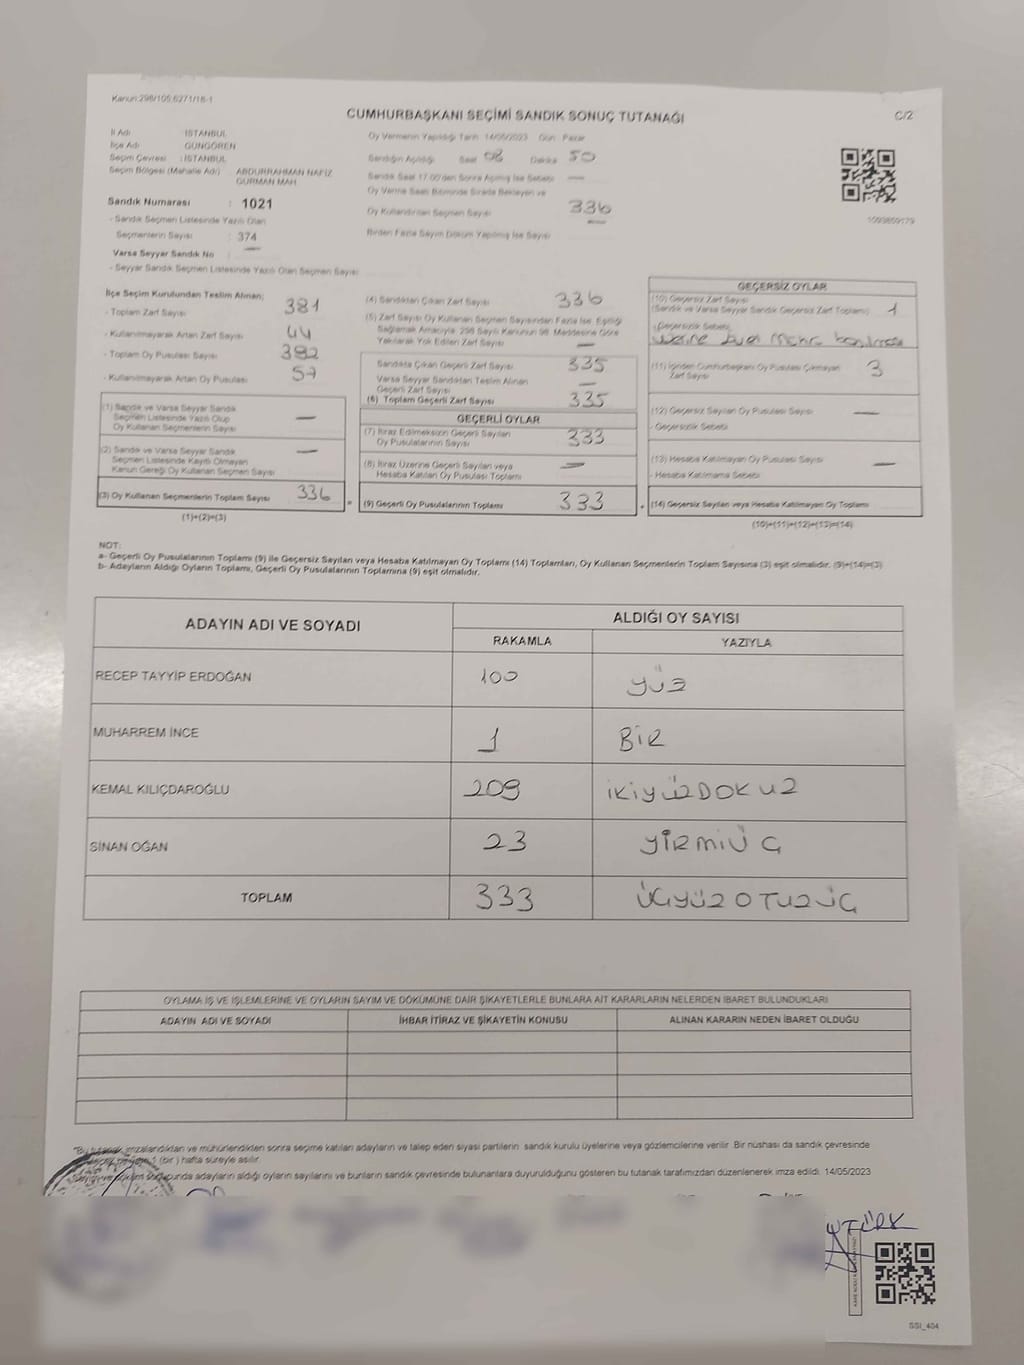 Kanun:298/105;6271/18-1
CUMHURBAŞKANI SEÇİMİ SANDIK SONUÇ TUTANAĞI
C/2
İl Adı : İSTANBUL
İlçe Adı : GÜNGÖREN
Seçim Çevresi : İSTANBUL
Seçim Bölgesi (Mahalle Adı) : ABDURRAHMAN NAFİZ
GÜRMAN MAH.
Sandık Numarası : 1021
- Sandık Seçmen Listesinde Yazılı Olan
Seçmenlerin Sayısı : 374
Varsa Seyyar Sandık No : —
- Seyyar Sandık Seçmen Listesinde Yazılı Olan Seçmen Sayısı
Oy Vermenin Yapıldığı Tarih 14/05/2023 Gün: Pazar
Sandığın Açıldığı Saat 08 Dakika 50
Sandık Saat 17.00'den Sonra Açılmış İse Sebebi —
Oy Verme Saati Bitiminde Sırada Bekleyen ve
Oy Kullandırılan Seçmen Sayısı 336
Birden Fazla Sayım Döküm Yapılmış İse Sayısı
1093859179
İlçe Seçim Kurulundan Teslim Alınan;
- Toplam Zarf Sayısı 381
- Kullanılmayarak Artan Zarf Sayısı 44
- Toplam Oy Pusulası Sayısı 392
- Kullanılmayarak Artan Oy Pusulası 57
(1) Sandık ve Varsa Seyyar Sandık
Seçmen Listesinde Yazılı Olup
Oy Kullanan Seçmenlerin Sayısı —
(2) Sandık ve Varsa Seyyar Sandık
Seçmen Listesinde Kayıtlı Olmayan
Kanun Gereği Oy Kullanan Seçmen Sayısı —
(3) Oy Kullanan Seçmenlerin Toplam Sayısı 336
(1)+(2)=(3)
(4) Sandıktan Çıkan Zarf Sayısı 336
(5) Zarf Sayısı Oy Kullanan Seçmen Sayısından Fazla İse, Eşitliği
Sağlamak Amacıyla, 298 Sayılı Kanunun 98. Maddesine Göre
Yakılarak Yok Edilen Zarf Sayısı —
Sandıkta Çıkan Geçerli Zarf Sayısı 335
Varsa Seyyar Sandıktan Teslim Alınan
Geçerli Zarf Sayısı —
(6) Toplam Geçerli Zarf Sayısı 335
GEÇERLİ OYLAR
(7) İtiraz Edilmeksizin Geçerli Sayılan
Oy Pusulalarının Sayısı 333
(8) İtiraz Üzerine Geçerli Sayılan veya
Hesaba Katılan Oy Pusulası Toplamı —
= (9) Geçerli Oy Pusulalarının Toplamı 333
GEÇERSİZ OYLAR
(10) Geçersiz Zarf Sayısı
(Sandık ve Varsa Seyyar Sandık Geçersiz Zarf Toplamı) 1
- Geçersizlik Sebebi
(11) İçinden Cumhurbaşkanı Oy Pusulası Çıkmayan
Zarf Sayısı 3
(12) Geçersiz Sayılan Oy Pusulası Sayısı —
- Geçersizlik Sebebi
(13) Hesaba Katılmayan Oy Pusulası Sayısı —
- Hesaba Katılmama Sebebi
+ (14) Geçersiz Sayılan veya Hesaba Katılmayan Oy Toplamı
(10)+(11)+(12)+(13)=(14)
NOT:
a- Geçerli Oy Pusulalarının Toplamı (9) ile Geçersiz Sayılan veya Hesaba Katılmayan Oy Toplamı (14) Toplamları, Oy Kullanan Seçmenlerin Toplam Sayısına (3) eşit olmalıdır. (9)+(14)=(3)
b- Adayların Aldığı Oyların Toplamı, Geçerli Oy Pusulalarının Toplamına (9) eşit olmalıdır.
ADAYIN ADI VE SOYADI
ALDIĞI OY SAYISI
RAKAMLA YAZIYLA
RECEP TAYYİP ERDOĞAN 100 YÜZ
MUHARREM İNCE 1 BİR
KEMAL KILIÇDAROĞLU 209 İKİYÜZDOKUZ
SİNAN OĞAN 23 YİRMİÜÇ
TOPLAM 333 ÜÇYÜZOTUZÜÇ
OYLAMA İŞ VE İŞLEMLERİNE VE OYLARIN SAYIM VE DÖKÜMÜNE DAİR ŞİKAYETLERLE BUNLARA AİT KARARLARIN NELERDEN İBARET BULUNDUKLARI
ADAYIN ADI VE SOYADI İHBAR İTİRAZ VE ŞİKAYETİN KONUSU ALINAN KARARIN NEDEN İBARET OLDUĞU
*Bu tutanak imzalandıktan ve mühürlendikten sonra seçime katılan adayların ve talep eden siyasi partilerin sandık kurulu üyelerine veya gözlemcilerine verilir. Bir nüshası da sandık çevresinde
1 (bir) hafta süreyle asılır.
sonunda adayların aldığı oyların sayılarını ve bunların sandık çevresinde bulunanlara duyurulduğunu gösteren bu tutanak tarafımızdan düzenlenerek imza edildi. 14/05/2023
SSI_404